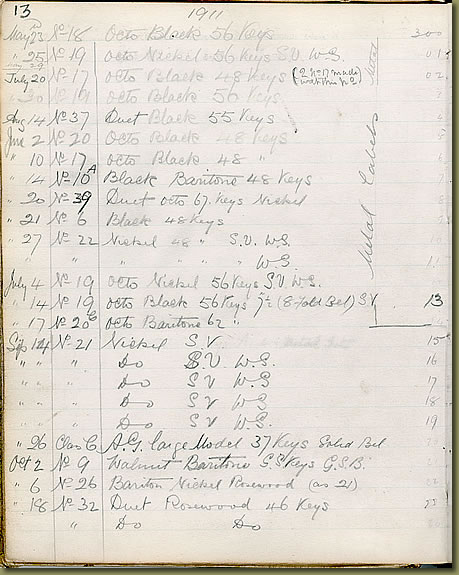 13 1911
May 23 No 18 Octo Black 56 Keys 300
" 25 No 19 Octo Nickel 56 Keys S.V. W.S. 01
July 20 No 17 Octo Black 48 Keys (2 No 17 made with this No) 02
" 30 No 19 Octo Black 56 Keys
Aug 14 No 37 Duet Black 55 Keys
June 2 No 20 Octo Black 48 Keys
" 10 No 17 Octo Black 48 "
" 14 No 10A Black Baritone 48 Keys
" 20 No 39 Duet Octo 67 Keys Nickel
" 21 No 6 Black 48 Keys
" 27 No 22 Nickel 48 " S.V. W.S. 10
" " " " W.S. 11
Metal Labels
July 4 No 19 Octo Nickel 56 Keys S.V. W.S.
" 14 No 19 Octo Black 56 Keys (8 fold Bel) S.V 13
" 17 No 20C Octo Baritone 62 "
Sep 14 No 21 Nickel S.V 15
" " " Do S.V. W.S. 16
" " " Do S V W S 17
" " " Do S V W S 18
" " " Do S V W S 19
" 26 Class C A.G. large Model 37 Keys Solid Bel
Oct 2 No 9 Walnut Baritone G.S Keys G.S.B.
" 6 No 26 Bariton Nickel Rosewood (as 21)
" 18 No 32 Duet Rosewood 46 Keys 23
" Do Do